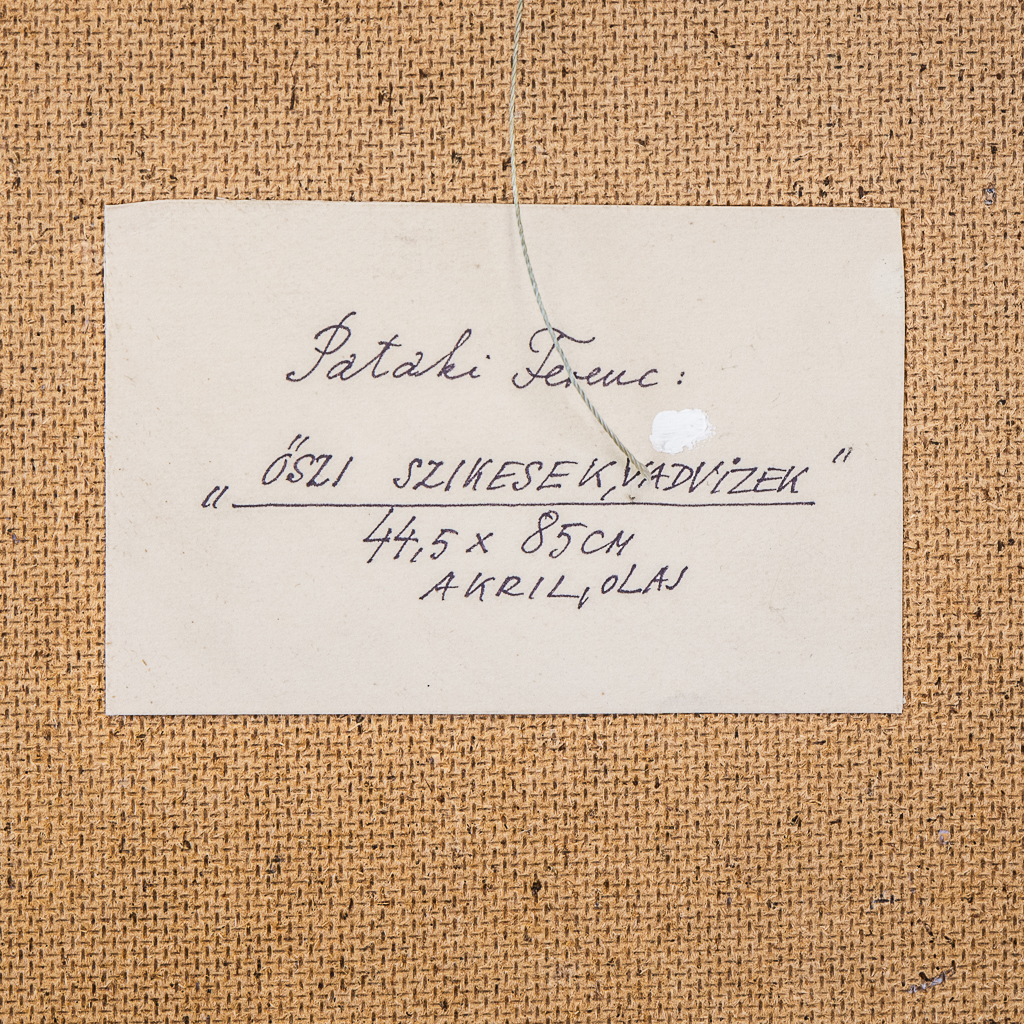 Pataki Ferenc:
„ŐSZI SZIKESEK, VADVIZEK"
44,5 x 85CM
AKRIL, OLAJ